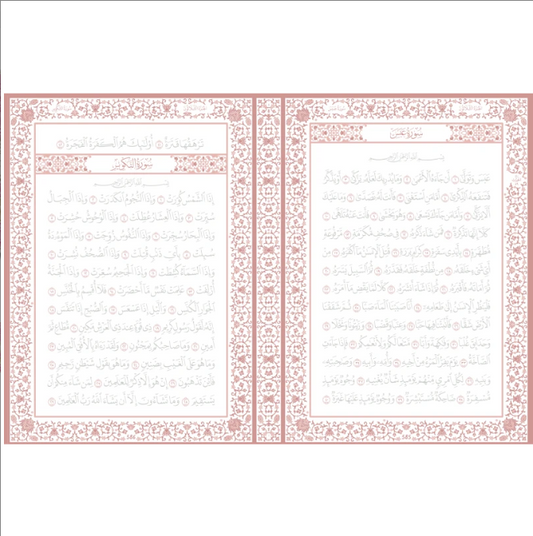 سُورَةُ عَبَسَ
بِسْمِ اللَّهِ الرَّحْمَٰنِ الرَّحِيمِ
عَبَسَ وَتَوَلَّىٰ أَن جَاءَهُ الْأَعْمَىٰ وَمَا يُدْرِيكَ لَعَلَّهُ يَزَّكَّىٰ أَوْ يَذَّكَّرُ
فَتَنفَعَهُ الذِّكْرَىٰ أَمَّا مَنِ اسْتَغْنَىٰ فَأَنتَ لَهُ تَصَدَّىٰ وَمَا عَلَيْكَ
أَلَّا يَزَّكَّىٰ وَأَمَّا مَن جَاءَكَ يَسْعَىٰ وَهُوَ يَخْشَىٰ فَأَنتَ عَنْهُ تَلَهَّىٰ
كَلَّا إِنَّهَا تَذْكِرَةٌ فَمَن شَاءَ ذَكَرَهُ فِي صُحُفٍ مُّكَرَّمَةٍ مَّرْفُوعَةٍ
مُّطَهَّرَةٍ بِأَيْدِي سَفَرَةٍ كِرَامٍ بَرَرَةٍ قُتِلَ الْإِنسَانُ مَا أَكْفَرَهُ مِنْ
أَيِّ شَيْءٍ خَلَقَهُ مِن نُّطْفَةٍ خَلَقَهُ فَقَدَّرَهُ ثُمَّ السَّبِيلَ يَسَّرَهُ
ثُمَّ أَمَاتَهُ فَأَقْبَرَهُ ثُمَّ إِذَا شَاءَ أَنشَرَهُ كَلَّا لَمَّا يَقْضِ مَا أَمَرَهُ
فَلْيَنظُرِ الْإِنسَانُ إِلَىٰ طَعَامِهِ أَنَّا صَبَبْنَا الْمَاءَ صَبًّا ثُمَّ شَقَقْنَا
الْأَرْضَ شَقًّا فَأَنبَتْنَا فِيهَا حَبًّا وَعِنَبًا وَقَضْبًا وَزَيْتُونًا وَنَخْلًا
وَحَدَائِقَ غُلْبًا وَفَاكِهَةً وَأَبًّا مَّتَاعًا لَّكُمْ وَلِأَنْعَامِكُمْ فَإِذَا جَاءَتِ
الصَّاخَّةُ يَوْمَ يَفِرُّ الْمَرْءُ مِنْ أَخِيهِ وَأُمِّهِ وَأَبِيهِ وَصَاحِبَتِهِ
وَبَنِيهِ لِكُلِّ امْرِئٍ مِّنْهُمْ يَوْمَئِذٍ شَأْنٌ يُغْنِيهِ وُجُوهٌ يَوْمَئِذٍ
مُّسْفِرَةٌ ضَاحِكَةٌ مُّسْتَبْشِرَةٌ وَوُجُوهٌ يَوْمَئِذٍ عَلَيْهَا غَبَرَةٌ
تَرْهَقُهَا قَتَرَةٌ أُولَٰئِكَ هُمُ الْكَفَرَةُ الْفَجَرَةُ
سُورَةُ التَّكْوِيرِ
بِسْمِ اللَّهِ الرَّحْمَٰنِ الرَّحِيمِ
إِذَا الشَّمْسُ كُوِّرَتْ وَإِذَا النُّجُومُ انكَدَرَتْ وَإِذَا الْجِبَالُ
سُيِّرَتْ وَإِذَا الْعِشَارُ عُطِّلَتْ وَإِذَا الْوُحُوشُ حُشِرَتْ
وَإِذَا الْبِحَارُ سُجِّرَتْ وَإِذَا النُّفُوسُ زُوِّجَتْ وَإِذَا الْمَوْءُودَةُ
سُئِلَتْ بِأَيِّ ذَنبٍ قُتِلَتْ وَإِذَا الصُّحُفُ نُشِرَتْ
وَإِذَا السَّمَاءُ كُشِطَتْ وَإِذَا الْجَحِيمُ سُعِّرَتْ وَإِذَا الْجَنَّةُ
أُزْلِفَتْ عَلِمَتْ نَفْسٌ مَّا أَحْضَرَتْ فَلَا أُقْسِمُ بِالْخُنَّسِ
الْجَوَارِ الْكُنَّسِ وَاللَّيْلِ إِذَا عَسْعَسَ وَالصُّبْحِ إِذَا تَنَفَّسَ
إِنَّهُ لَقَوْلُ رَسُولٍ كَرِيمٍ ذِي قُوَّةٍ عِندَ ذِي الْعَرْشِ مَكِينٍ مُّطَاعٍ ثَمَّ
أَمِينٍ وَمَا صَاحِبُكُم بِمَجْنُونٍ وَلَقَدْ رَآهُ بِالْأُفُقِ الْمُبِينِ
وَمَا هُوَ عَلَى الْغَيْبِ بِضَنِينٍ وَمَا هُوَ بِقَوْلِ شَيْطَانٍ رَّجِيمٍ
فَأَيْنَ تَذْهَبُونَ إِنْ هُوَ إِلَّا ذِكْرٌ لِّلْعَالَمِينَ لِمَن شَاءَ مِنكُمْ أَن
يَسْتَقِيمَ وَمَا تَشَاءُونَ إِلَّا أَن يَشَاءَ اللَّهُ رَبُّ الْعَالَمِينَ